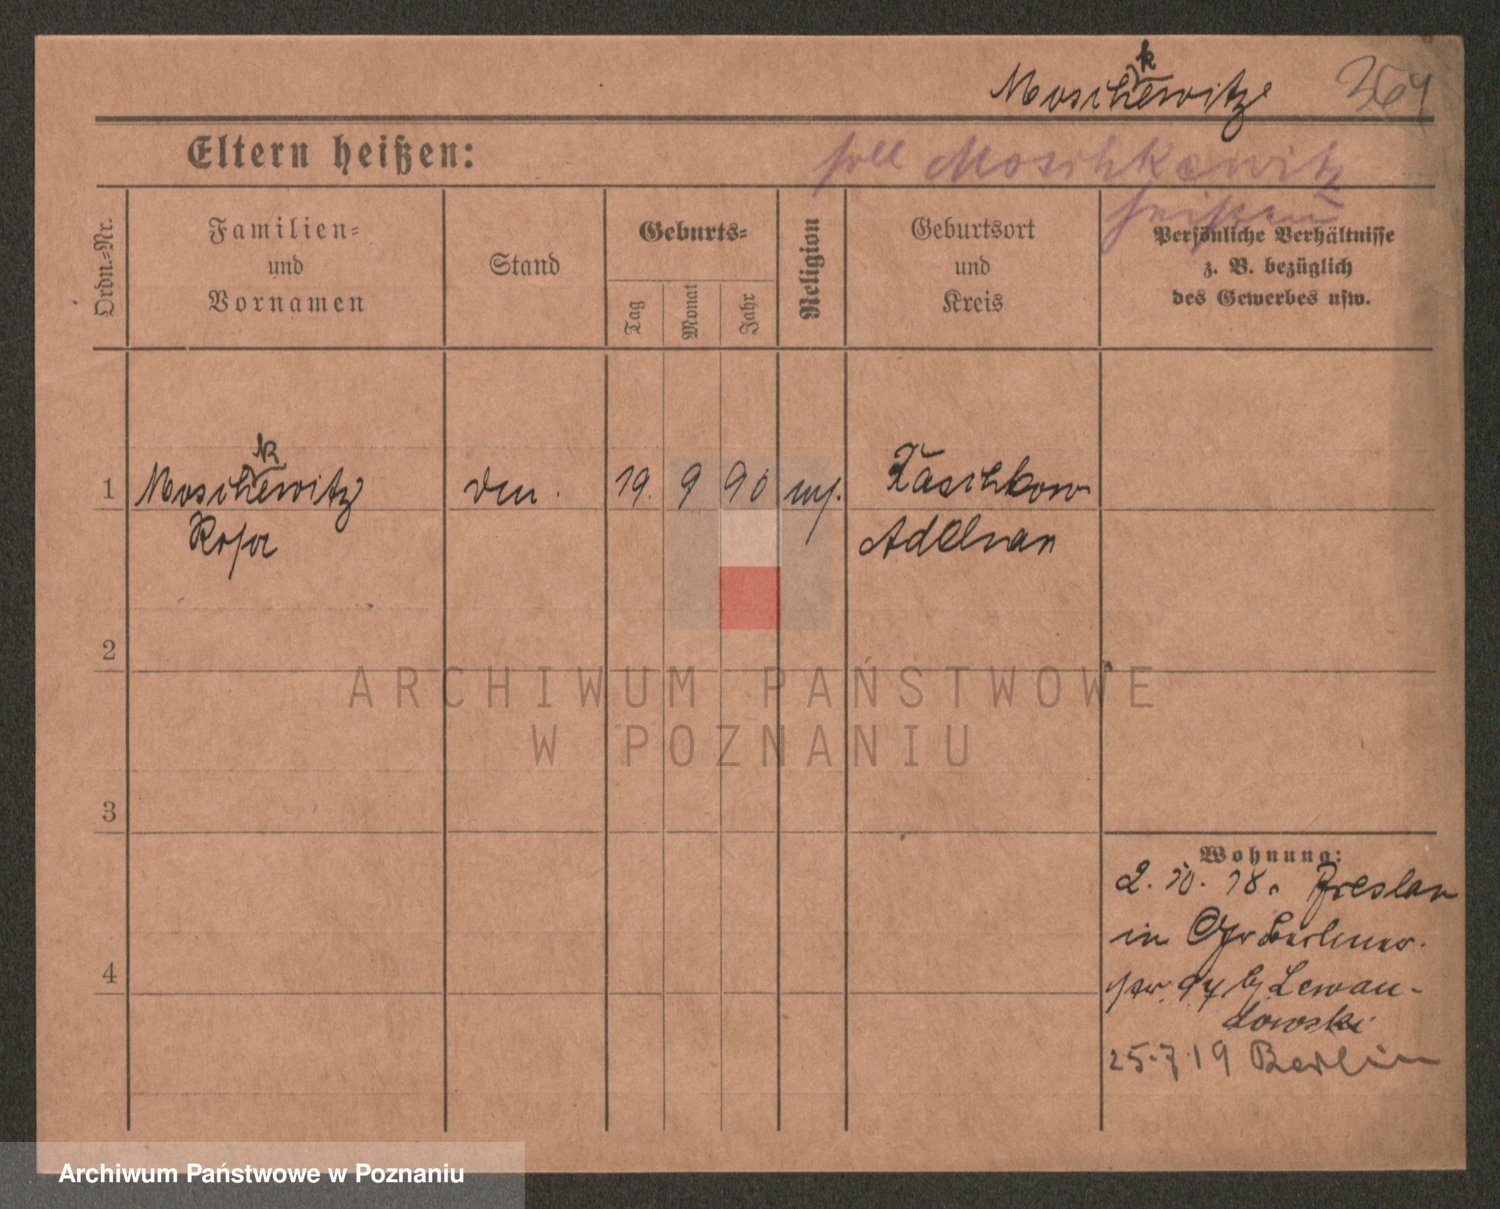 Moschkewitz 369
Eltern heißen:
soll Moschkewitz
heißen
Ordn.-Nr.
Familien-
und
Vornamen
Stand
Geburts-
Tag
Monat
Jahr
Religion
Geburtsort
und
Kreis
Persönliche Verhältnisse
z. B. bezüglich
des Gewerbes usw.
1 Moschkewitz 19. 9 90 Zaschkow
Rosa Adelnan
2
3
4
Wohnung:
2. 10. 18. Breslau
in Berliner-
str. 97 b/ Lewan-
dowski
25.7.19 Berlin
ARCHIWUM PAŃSTWOWE
W POZNANIU
Archiwum Państwowe w Poznaniu